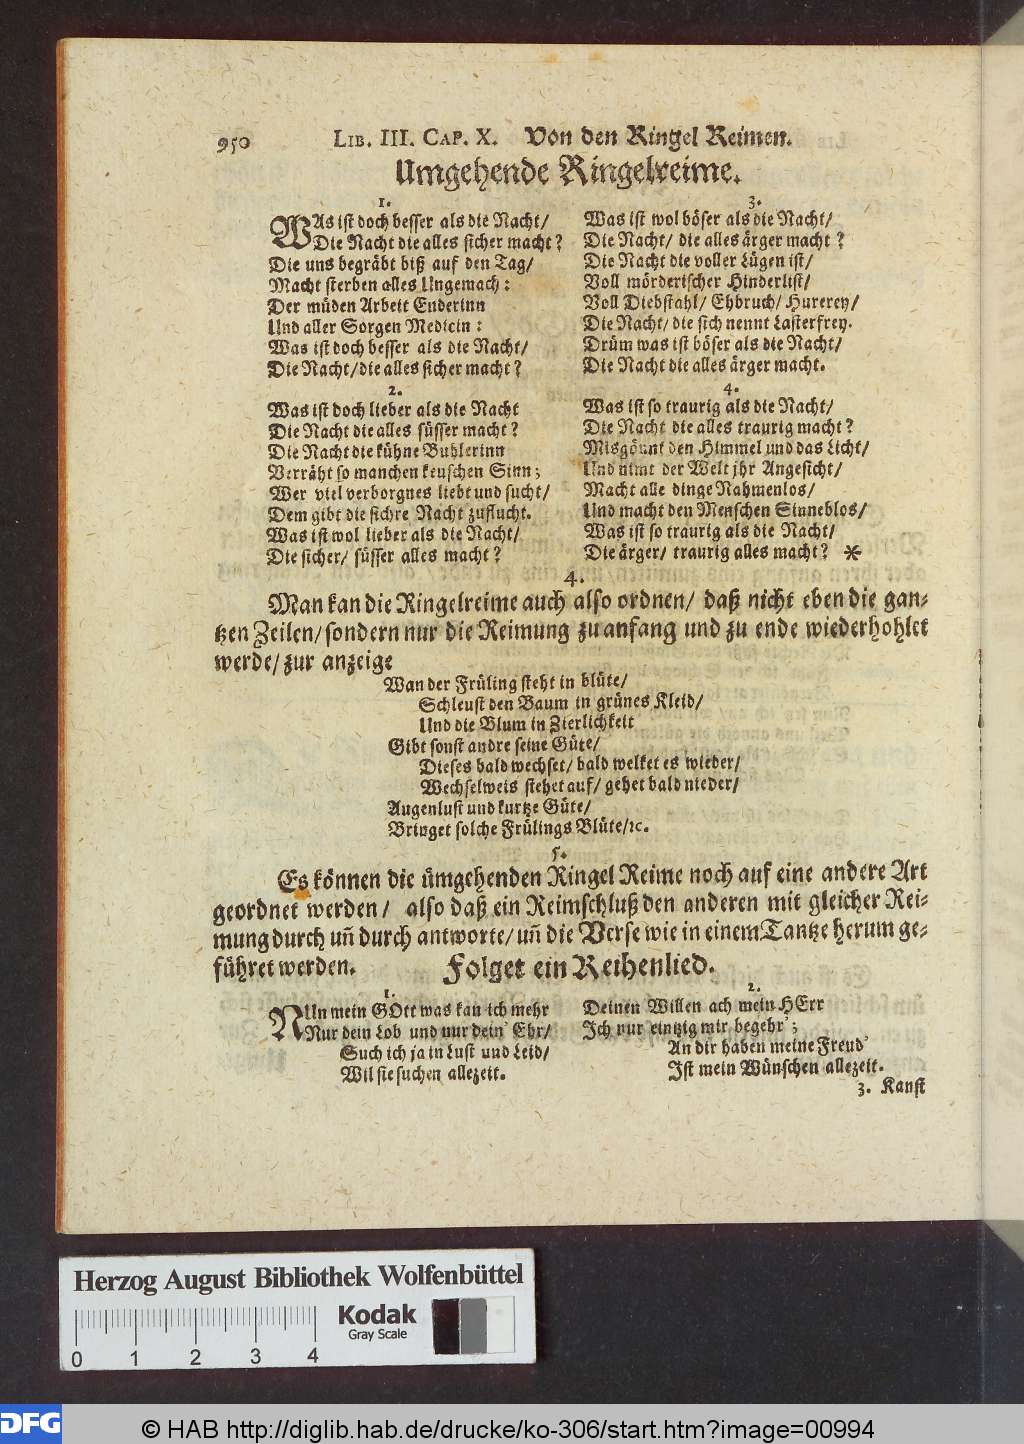 950 LIB. III. CAP. X. Von den Ringel Reimen.
Umgehende Ringelreime.
1.
WAs ist doch besser als die Nacht/
Die Nacht die alles sicher macht?
Die uns begräbt biß auf den Tag/
Macht sterben alles Ungemach:
Der müden Arbeit Enderinn
Und aller Sorgen Medicin:
Was ist doch besser als die Nacht/
Die Nacht/die alles sicher macht?
2.
Was ist doch lieber als die Nacht
Die Nacht die alles süsser macht?
Die Nacht die kühne Buhlerinn
Verräht so manchen keuschen Sinn;
Wer viel verborgnes liebt und sucht/
Dem gibt die sichre Nacht zuflucht.
Was ist wol lieber als die Nacht/
Die sicher/ süsser alles macht?
3.
Was ist wol böser als die Nacht/
Die Nacht/ die alles ärger macht?
Die Nacht die voller Lügen ist/
Voll mörderischer Hinderlist/
Voll Diebstahl/ Ehbruch/ Hurerey/
Die Nacht/ die sich nennt Lasterfrey.
Drüm was ist böser als die Nacht/
Die Nacht die alles ärger macht.
4.
Was ist so traurig als die Nacht/
Die Nacht die alles traurig macht?
Misgönnt den Himmel und das Licht/
Und nimt der Welt jhr Angesicht/
Macht alle dinge Nahmenlos/
Und macht den Menschen Sinneblos/
Was ist so traurig als die Nacht/
Die ärger/ traurig alles macht? *
4.
Man kan die Ringelreime auch also ordnen/ daß nicht eben die gan-
tzen Zeilen/sondern nur die Reimung zu anfang und zu ende wiederhohlet
werde/ zur anzeige
Wan der Früling steht in blüte/
Schleust den Baum in grünes Kleid/
Und die Blum in Zierlichkeit
Gibt sonst andre seine Güte/
Dieses bald wechset/ bald welket es wieder/
Wechselweis stehet auf/ gehet bald nieder/
Augenlust und kurtze Güte/
Bringet solche Frülings Blüte/ꝛc.
5.
Es können die ümgehenden Ringel Reime noch auf eine andere Art
geordnet werden/ also daß ein Reimschluß den anderen mit gleicher Rei-
mung durch uñ durch antworte/ uñ die Verse wie in einem Tantze herum ge-
führet werden. Folget ein Reihenlied.
1.
NUn mein GOtt was kan ich mehr
Nur dein Lob und nur dein' Ehr/
Such ich ja in Lust und Leid/
Wil sie suchen allezeit.
2.
Deinen Willen ach mein HErr
Jch nur eintzig mir begehr';
An dir haben meine Freud'
Jst mein Wünschen allezeit.
3. Kanst
Herzog August Bibliothek Wolfenbüttel
Kodak
Gray Scale
0 1 2 3 4
DFG © HAB http://diglib.hab.de/drucke/ko-306/start.htm?image=00994